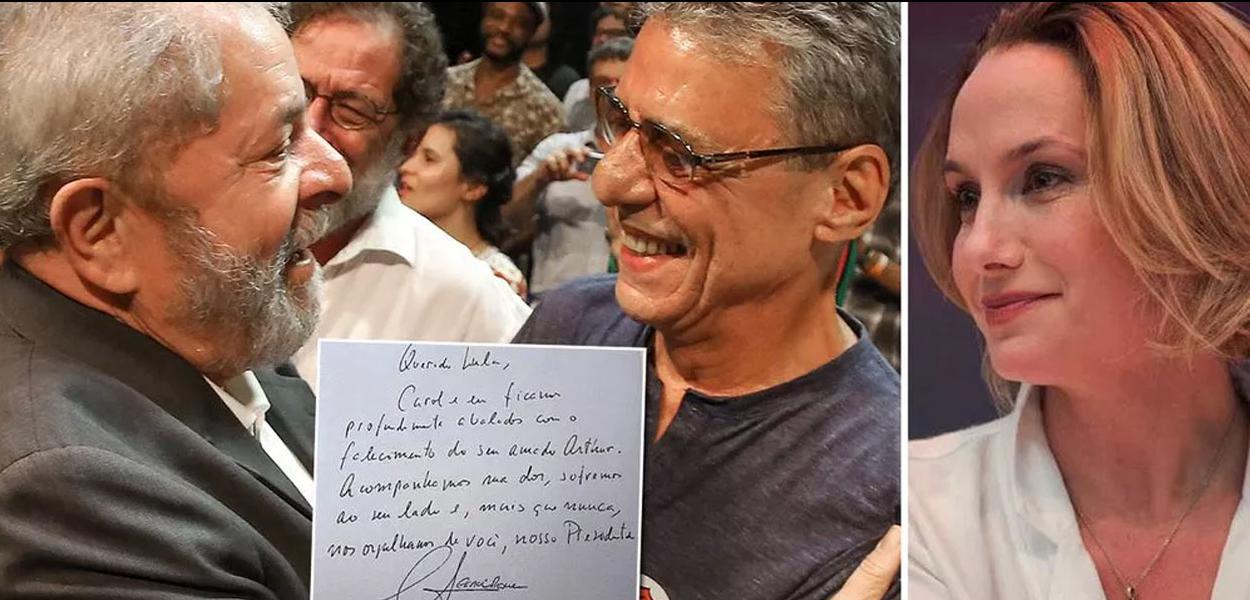 Querido Lula,
Carol e eu ficamos
profundamente abalados com o
falecimento do seu amado Arthur.
Acompanhamos sua dor, sofremos
ao seu lado e, mais que nunca,
nos orgulhamos de você, nosso Presidente